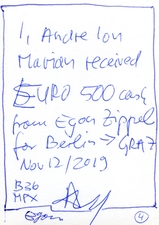 I, Andre Ion
Marian received
EURO 500 cash
from Egon Zippel
for Berlin → GRAZ
Nov 12/2019
B36
MPX
Egon
4